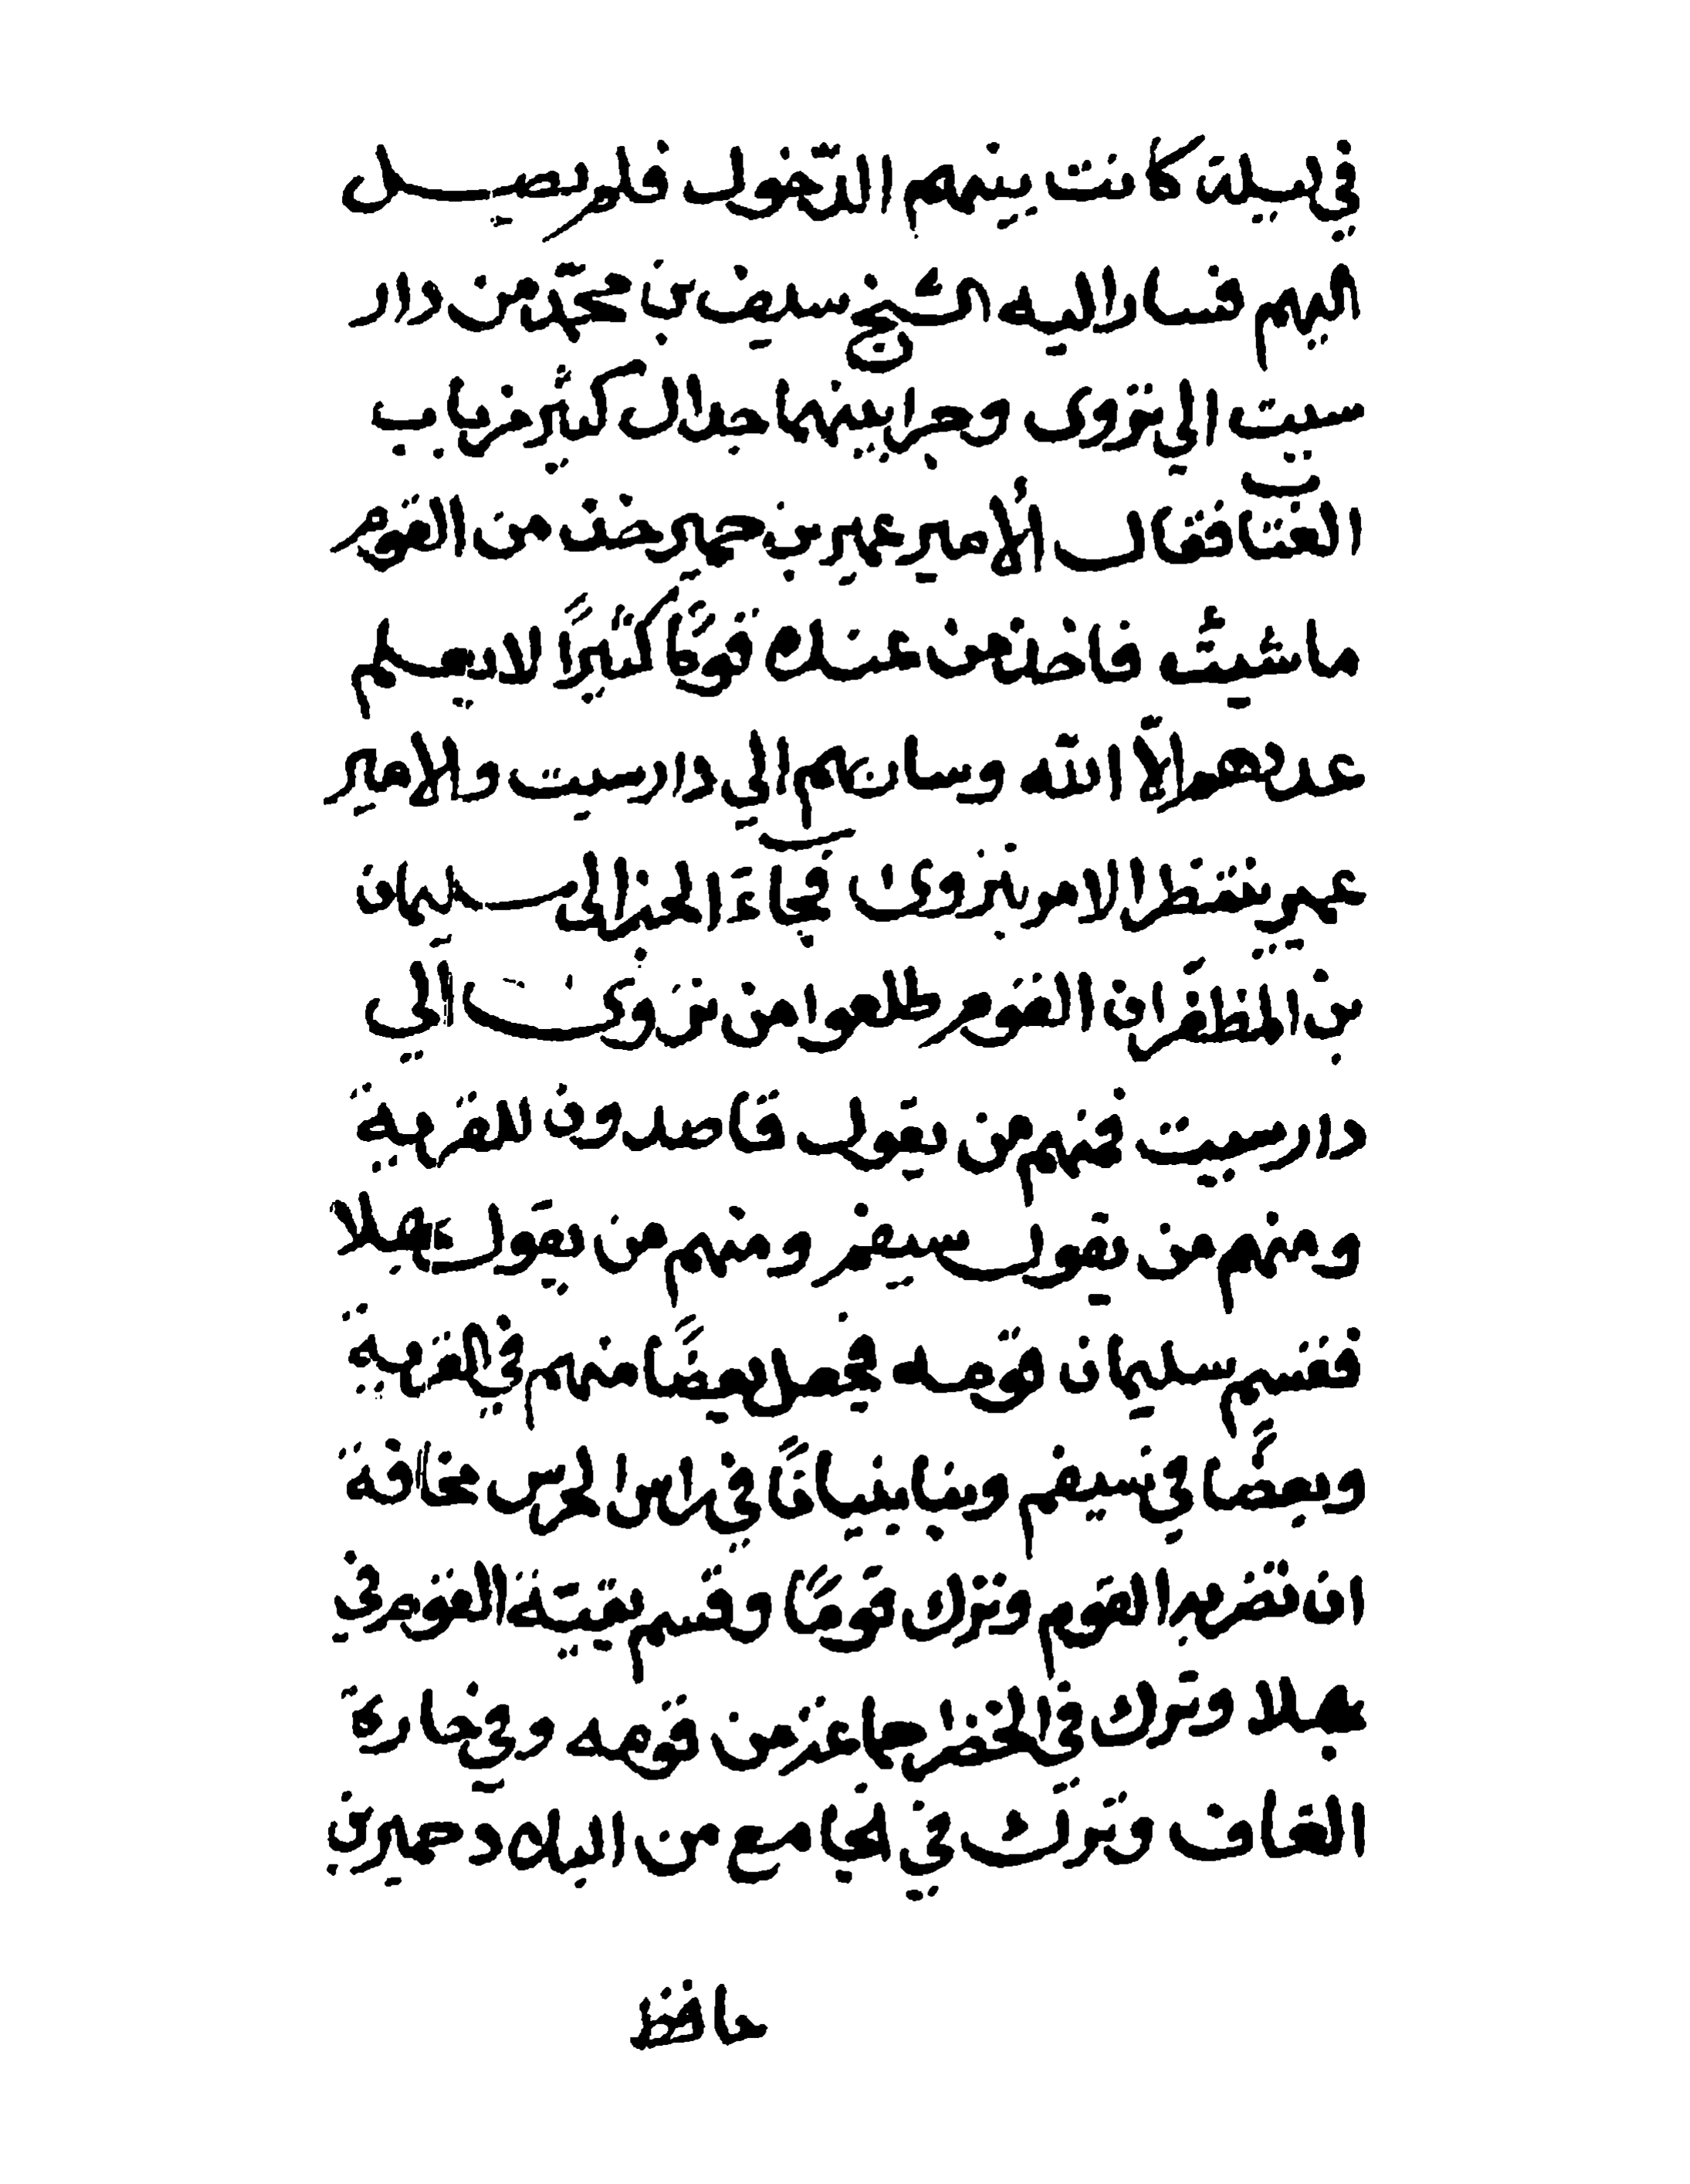 في ليلة كانت بينهم الدّخول فلم يصل
اليهم فسار اليه الشيخ سيف بن محمّد من دار
سيت الي نزوى وجرا بينهما جدال كثير من باب
الغتا فقال الأمير عمير بن حمير خذ من القوم
ما شيت فاخذ من عندك قومًا كثيرًا لا يعلم
عددهم الاّ الله وسار بهم الي دار سيت والامير
عمير ينتظر الامر بنزوى فجاءَ الخبر الى سليمان
بن المظفر ان القوم طلعوا من نزوى الي
دار سيت فمنهم من يقول قاصدون للقرية
ومنهم من يقول سيفم ومنهم من يقول بهلا
فقسم سليمان قومه فجعل بعضًا منهم في القرية
وبعضًا في سيفم وبنا بنيانًا في راس الحرس مخافة
ان تضر به القوم وترك قومًا وقسم بقيّة القوم في
بهلا وترك في الخضرا جماعة من قومه وفي حارة
الغاف وترك في الجامع من البلاد حمير بن
حافظ